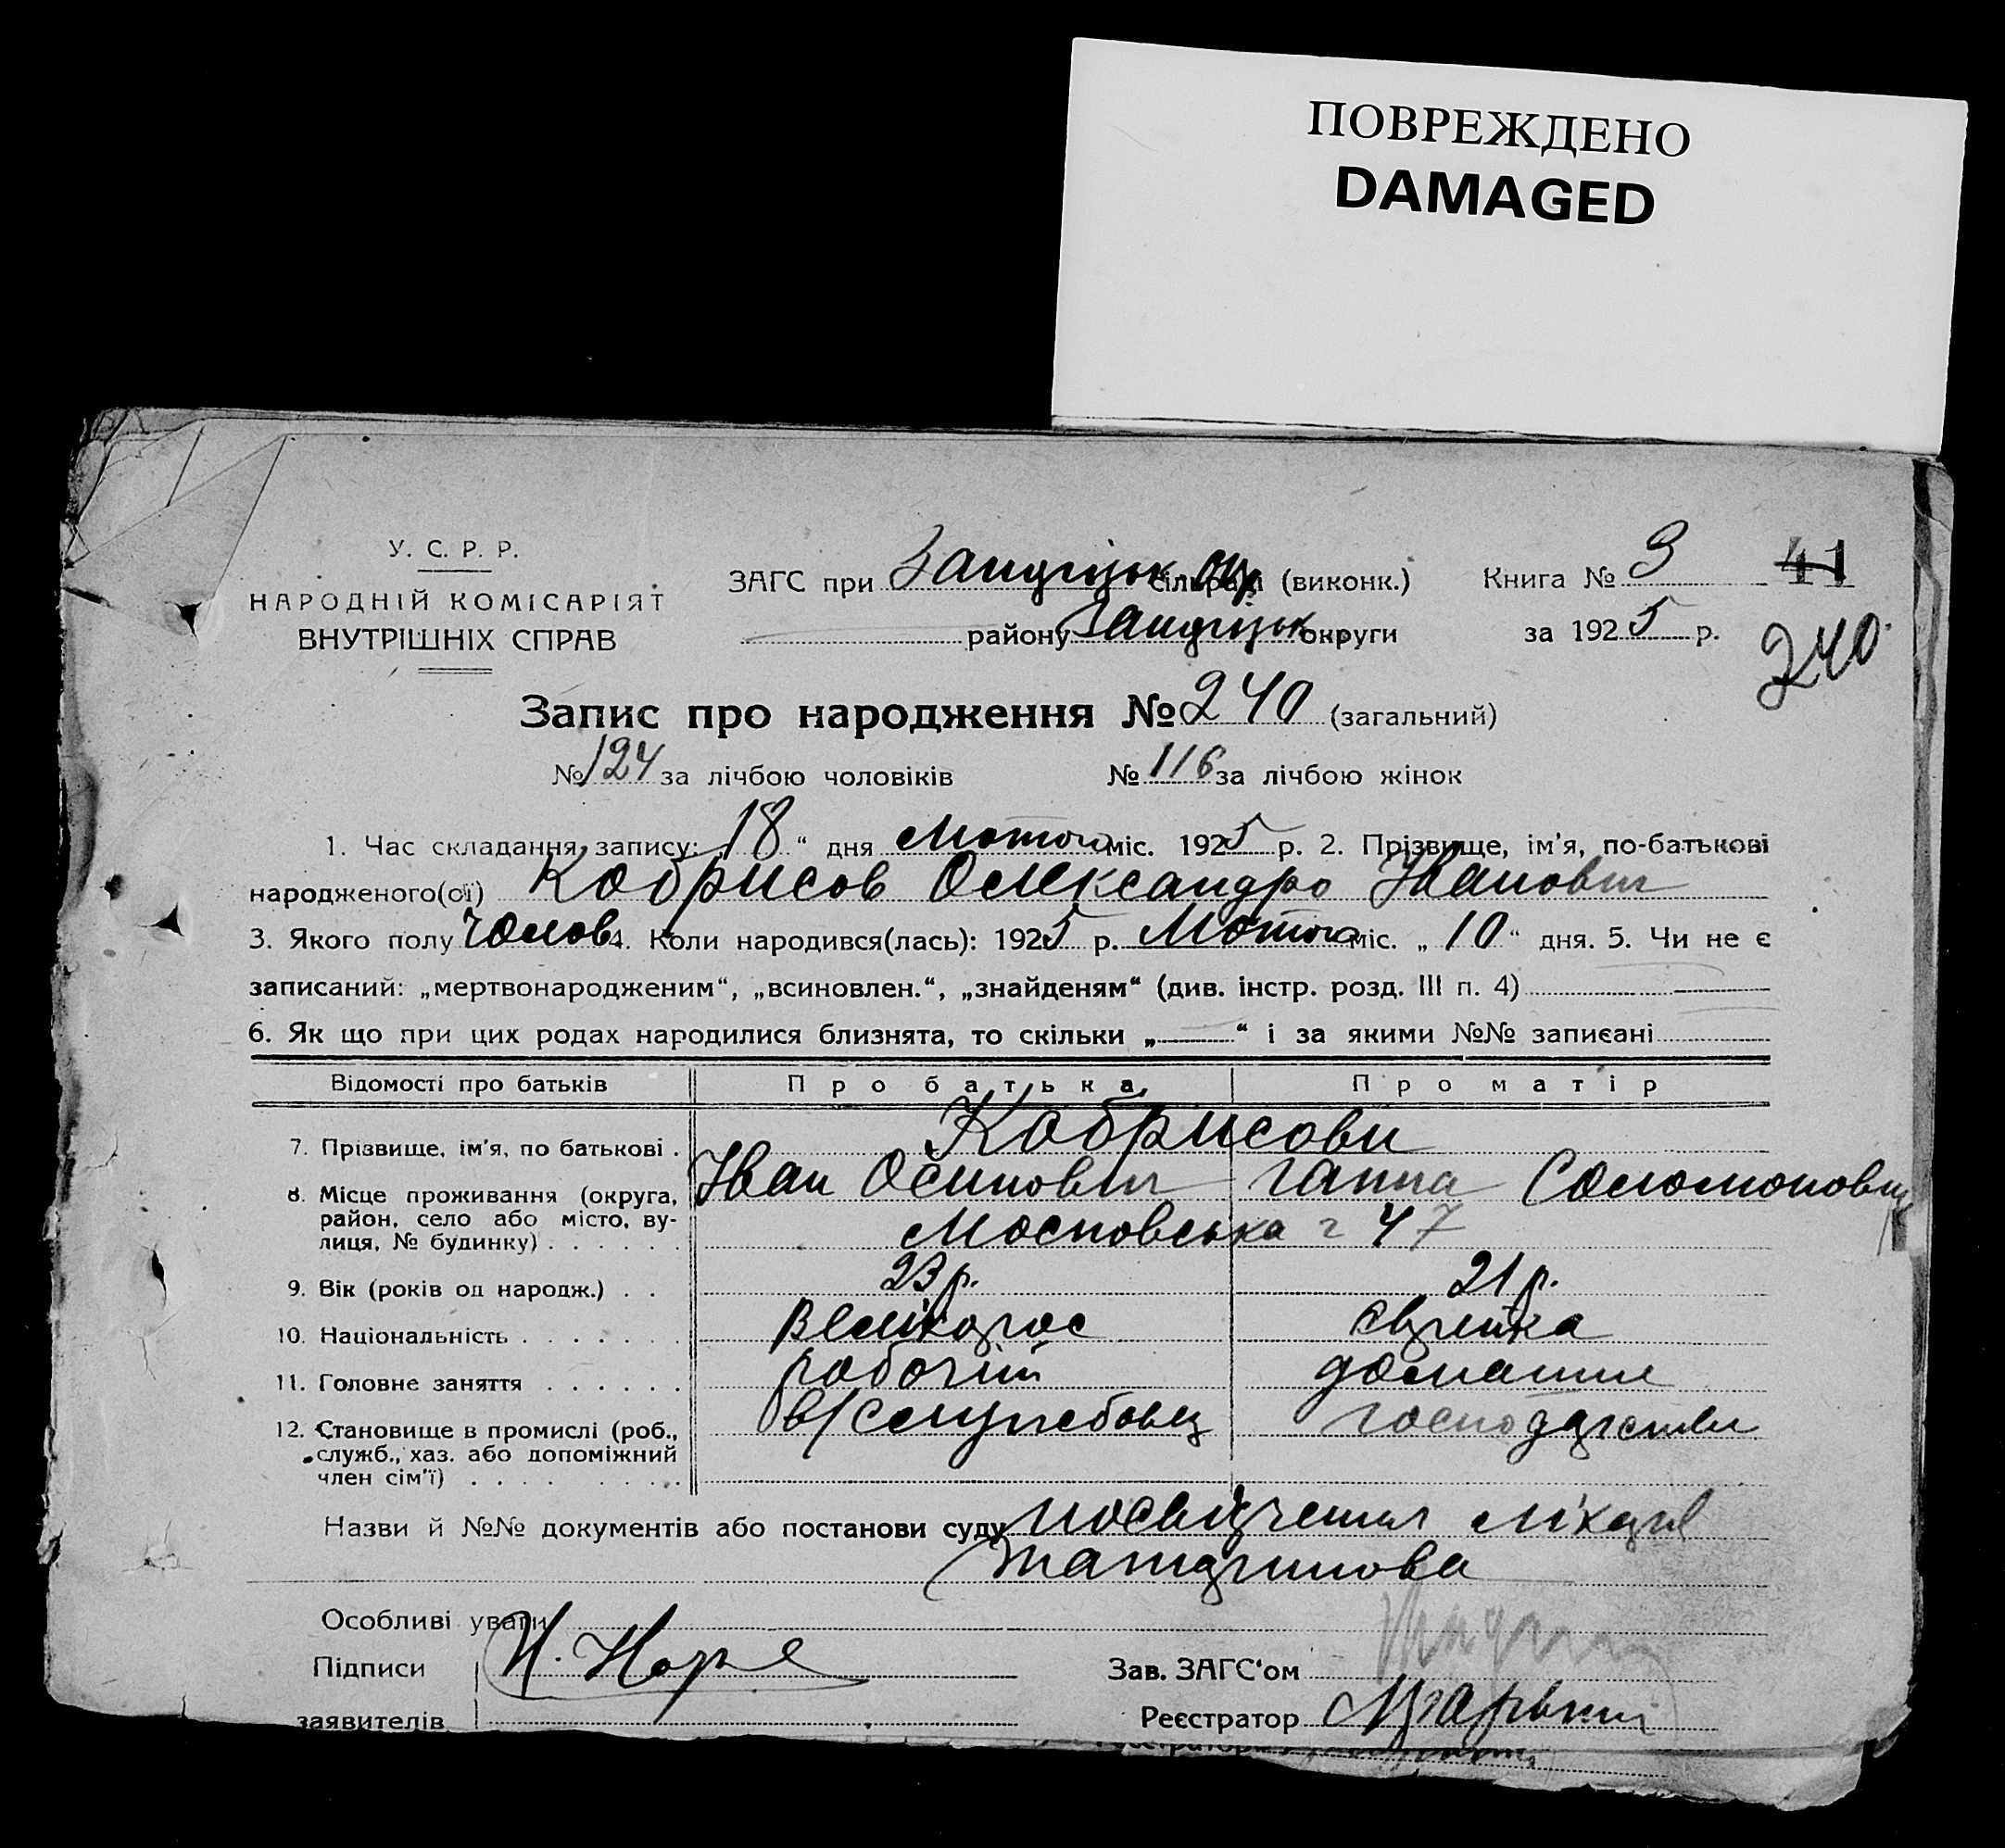 ПОВРЕЖДЕНО
DAMAGED
У. С. Р. Р.
НАРОДНІЙ КОМІСАРІЯТ
ВНУТРІШНІХ СПРАВ
ЗАГС при сільраді (виконк.)
району округи
Книга № 3
41
за 1925 р.
240
Запис про народження № 240 (загальний)
№ 124 за лічбою чоловіків № 116 за лічбою жінок
1. Час складання запису: „18“ дня Лютого міс. 1925 р. 2. Прізвище, ім'я, по-батькові
народженого(ої) Кобрисов Олександро Іванович
3. Якого полу Чолов. 4. Коли народився(лась): 1925 р. Лютого міс. „10“ дня. 5. Чи не є
записаний: „мертвонародженим“, „всиновлен.“, „знайденям“ (див. інстр. розд. III п. 4)
6. Як що при цих родах народилися близнята, то скільки „ “ і за якими №№ записані
Відомості про батьків Про батька Про матір
7. Прізвище, ім'я, по батькові . Кобрисови
Іван Осипович Ганна Соломоновна
8. Місце проживання (округа,
район, село або місто, ву-
лиця, № будинку) . . . . . . Московська 47
9. Вік (років од народж.) . . 23 р. 21 р.
10. Національність . . . . . . . велікорос єврейка
11. Головне заняття . . . . . . робочий домашнє
12. Становище в промислі (роб., в/службовец господарство
служб., хаз. або допоміжний
член сім'ї) . . . . . . . . .
Назви й №№ документів або постанови суду посвідчення лікаря
Особливі уваги
Підписи
заявителів
Зав. ЗАГС'ом
Реєстратор